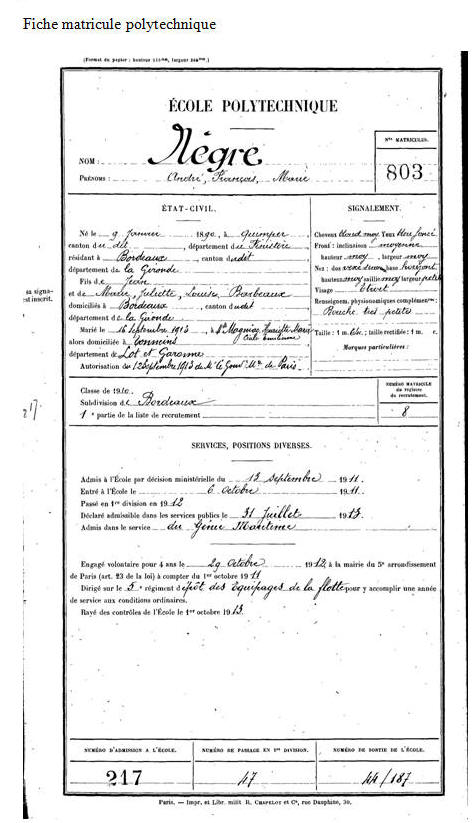 Fiche matricule polytechnique
(Format du papier : hauteur 315mm, largeur 205mm.)
ÉCOLE POLYTECHNIQUE
Nos MATRICULES.
803
NOM : Nègre
PRÉNOMS : André, François, Marie
ÉTAT-CIVIL.
Né le 9 Janvier 1890, à Quimper
canton du dit, département du Finistère
résidant à Bordeaux, canton dudit
département de la Gironde
Fils de Jean
et de Marie, Juliette, Louise Barbeaux
domiciliés à Bordeaux, canton dudit
département de la Gironde
Marié le 16 Septembre 1913, à Henriette Marie
alors domiciliée à Tonneins
département de Lot et Garonne
Autorisation de 1 Septembre 1913 de Mr le Gouvr Mre de Paris.
SIGNALEMENT.
Cheveux blond moy Yeux bleu foncé
Front : inclinaison moyenne
hauteur moy, largeur moy
Nez : dos base horizont
hauteur moy saillie moy largeur petite
Visage Étroit
Renseignem. physionomiques complémenres :
Bouche très petite
Taille : 1 m. c.; taille rectifiée : 1 m. c.
Marques particulières :
sa signa-
est inscrit.
217.
Classe de 1910.
Subdivision de Bordeaux
1e partie de la liste de recrutement
NUMÉRO MATRICULE
du registre
du recrutement.
8
SERVICES, POSITIONS DIVERSES.
Admis à l'École par décision ministérielle du 13 Septembre 1911.
Entré à l'École le 6 octobre 1911.
Passé en 1re division en 1912
Déclaré admissible dans les services publics le 31 Juillet 1913.
Admis dans le service du Génie Maritime
Engagé volontaire pour 4 ans le 29 Octobre 1912, à la mairie du 5e arrondissement
de Paris (art. 23 de la loi) à compter du 1er octobre 1911
Dirigé sur le 5e régiment dépôt des Équipages de la flotte pour y accomplir une année
de service aux conditions ordinaires.
Rayé des contrôles de l'École le 1er octobre 1913.
NUMÉRO D'ADMISSION A L'ÉCOLE.
217
NUMÉRO DE PASSAGE EN 1re DIVISION.
47
NUMÉRO DE SORTIE DE L'ÉCOLE.
44/187
Paris. — Impr. et Libr. milit R. CHAPELOT et Ce, rue Dauphine, 30.